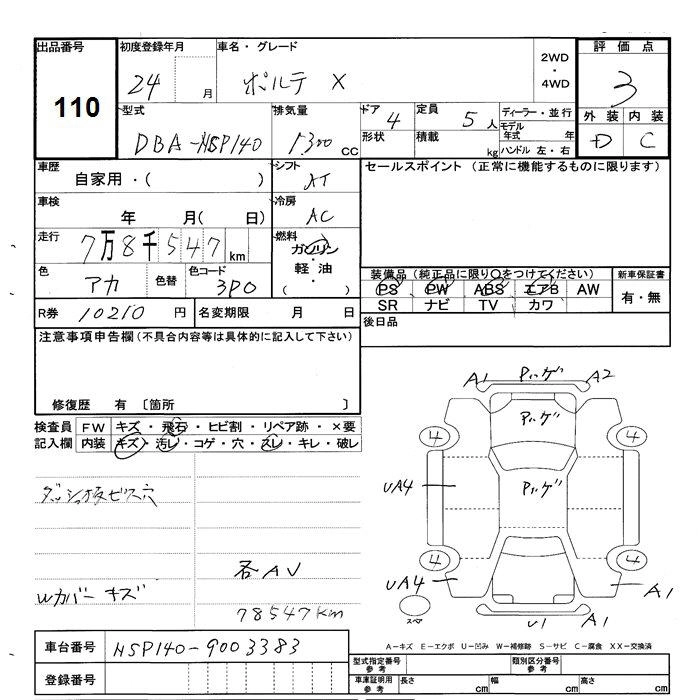 出品番号
110
初度登録年月
24 月
車名・グレード
ポルテ X
2WD
・
4WD
評価点
3
外装 内装
D C
型式
DBA-NSP140
排気量
1300 cc
ドア 4
形状
定員 5 人
積載 kg
ディーラー・並行
モデル年式 年
ハンドル 左・右
車歴
自家用・( )
シフト
AT
セールスポイント (正常に機能するものに限ります)
車検
年 月( 日)
冷房
AC
走行
7万8千547 km
燃料
ガソリン
・
軽油
( )
色
アカ
色替
色コード
3P0
装備品 (純正品に限り○をつけてください)
PS PW ABS エアB AW
SR ナビ TV カワ
新車保証書
有・無
R券 10210 円
名変期限 月 日
後日品
注意事項申告欄(不具合内容等は具体的に記入して下さい)
修復歴 有 〔箇所 〕
検査員 FW キズ・飛石・ヒビ割・リペア跡・×要
記入欄 内装 キズ・汚レ・コゲ・穴・スレ・キレ・破レ
ダッシュ板ビス穴
各AV
Wカバーキズ
78547km
A1 P.ハゲ A2
P.ハゲ
4 4
UA4 P.ハゲ
4 4
UA4 A1
スペア U1 A1
A-キズ E-エクボ U-凹み W-補修跡 S-サビ C-腐食 XX-交換済
車台番号 NSP140-9003383
登録番号
型式指定番号
参考
類別区分番号
参考
車庫証明用
参考
長さ cm 幅 cm 高さ cm